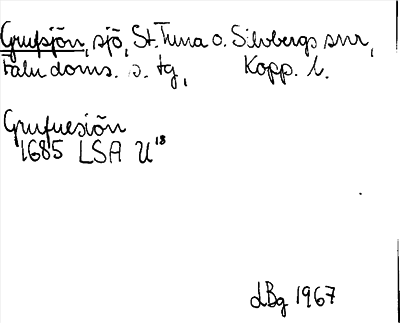 Grufsjön, sjö, St. Tuna o. Silvbergs snr,
Falu doms. s. tg, Kopp. l.
Grufuesiön
1685 LSA U18
dBg 1967